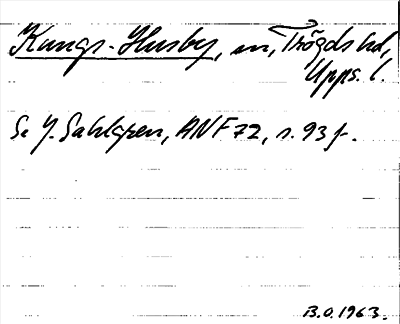 Kungs-Husby, sn, Trögds hd,
Upps. l.
Se J. Sahlgren, ANF 72, s. 93 f.
B.O. 1963.